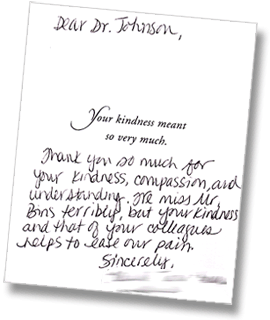 Dear Dr. Johnson,
Your kindness meant
so very much.
Thank you so much for
your kindness, compassion, and
understanding. We miss Mr.
Bins terribly, but your kindness
and that of your colleagues
helps to ease our pain.
Sincerely,